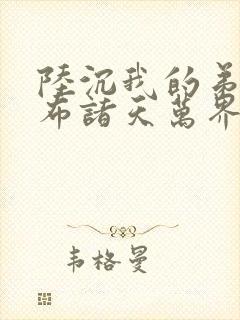 陸沉我的弟
布諸天萬界
韦格曼